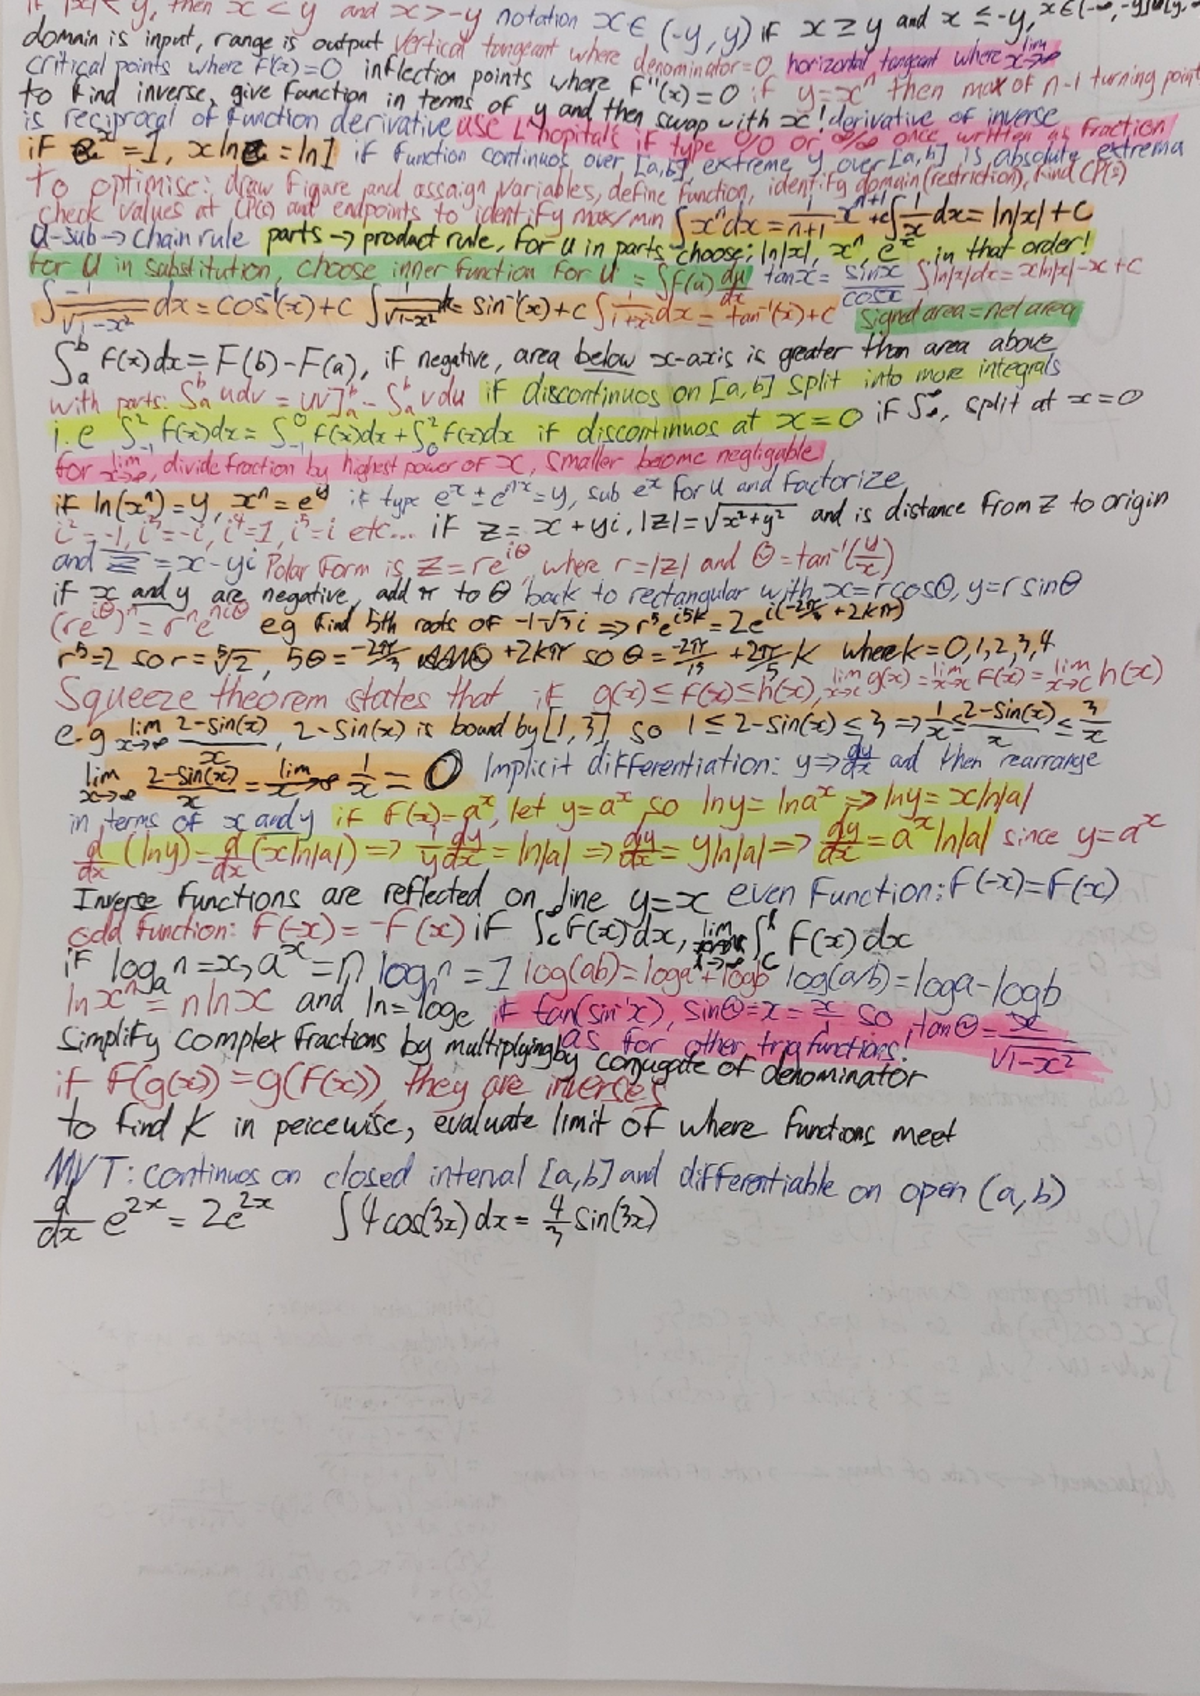 if |x| < y, then x < y and x > -y notation x ∈ (-y, y) if x ≥ y and x ≤ -y, x ∈ (-∞, -y] ∪ [y,
domain is input, range is output vertical tangeant where denominator=0, horizontal tangeant where lim x→∞
critical points where f'(x)=0 inflection points where f''(x)=0 if y=xⁿ then max of n-1 turning point
to find inverse, give function in terms of y and then swap with x! derivative of inverse
is reciprocal of function derivative use L'hopitals if type 0/0 or ∞/∞ once written as fraction
if eˣ = 1, x ln e = ln 1 if function continuos over [a,b], extreme y over [a,b] is absolute extrema
To optimise: draw figure and assaign variables, define function, identify domain (restriction), find CP(s)
check values at CP(s) and endpoints to identify max/min ∫xⁿdx = 1/(n+1) xⁿ⁺¹ + c ∫1/x dx = ln|x| + C
U-sub → Chain rule parts → product rule, for u in parts choose: ln|x|, xⁿ, eˣ in that order!
for U in substitution, choose inner function for U = ∫f(u) du/dx tanx = sinx/cosx ∫ln|x|dx = xln|x| - x + C
∫-1/√(1-x²) dx = cos⁻¹(x) + C ∫1/√(1-x²) dx = sin⁻¹(x) + C ∫1/(1+x²) dx = tan⁻¹(x) + C signed area = net area
∫ₐᵇ f(x)dx = F(b) - F(a), if negative, area below x-axis is greater than area above
with parts: ∫ₐᵇ udv = uv]ₐᵇ - ∫ₐᵇ vdu if discontinuos on [a,b] split into more integrals
i.e ∫₋₁² f(x)dx = ∫₋₁⁰ f(x)dx + ∫₀² f(x)dx if discontinuos at x=0 if ∫ , split at x=0
for lim x→∞, divide fraction by highest power of x, smaller become negligable
if ln(xⁿ) = y, xⁿ = eʸ if type eˣ ± eⁿˣ = y, sub eˣ for u and factorize
i² = -1, i³ = -i, i⁴ = 1, i⁵ = i etc... if z = x + yi, |z| = √(x²+y²) and is distance from z to origin
and z̅ = x - yi Polar form is z = re^(iθ), where r = |z| and θ = tan⁻¹(y/x)
if x and y are negative, add π to θ back to rectangular with x = rcosθ, y = r sinθ
(re^(iθ))ⁿ = rⁿe^(niθ) eg find 5th roots of -1-√3i ⇒ r⁵e^(i5θ) = 2e^(i(-2π/3 + 2kπ))
r⁵ = 2 so r = ⁵√2, 5θ = -2π/3 + 2kπ so θ = -2π/15 + 2π/5 k where k = 0,1,2,3,4
Squeeze theorem states that if g(x) ≤ f(x) ≤ h(x), lim x→c g(x) = lim x→c f(x) = lim x→c h(x)
e.g lim x→∞ (2-sin(x))/x, 2-sin(x) is bound by [1, 3] so 1 ≤ 2-sin(x) ≤ 3 ⇒ 1/x ≤ (2-sin(x))/x ≤ 3/x
lim x→∞ (2-sin(x))/x = lim x→∞ 1/x = 0 Implicit differentiation: y ⇒ dy/dx and then rearrange
in terms of x and y if f(x) = aˣ, let y = aˣ so lny = lnaˣ ⇒ lny = xln|a|
d/dx (lny) = d/dx (xln|a|) ⇒ 1/y dy/dx = ln|a| ⇒ dy/dx = yln|a| ⇒ dy/dx = aˣ ln|a| since y = aˣ
Inverse functions are reflected on line y=x even function: f(-x) = f(x)
odd function: f(-x) = -f(x) if ∫c∞ f(x)dx, lim k→∞ ∫cᵏ f(x)dx
if logₐn = x, aˣ = n logₙn = 1 log(ab) = loga + logb log(a/b) = loga - logb
lnxⁿ = nlnx and ln = logₑ if tan(sin⁻¹x), sinθ = x = x/1 so tanθ = x/√(1-x²)
as for other trig functions!
Simplify complex fractions by multiplying by conjugate of denominator
if f(g(x)) = g(f(x)), they are inverses
to find k in peicewise, evaluate limit of where functions meet
MVT: continuos on closed interval [a,b] and differentiable on open (a,b)
d/dx e²ˣ = 2e²ˣ ∫4cos(3x)dx = 4/3 sin(3x)